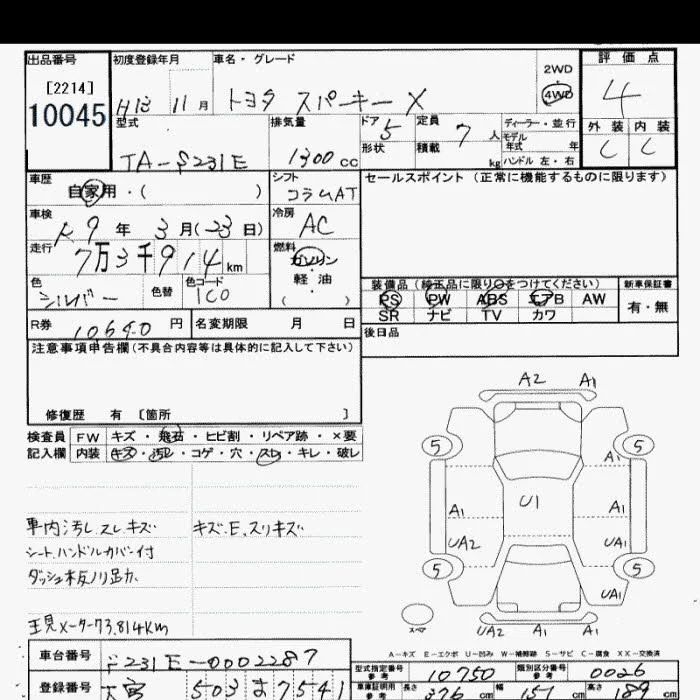 出品番号 初度登録年月 車名・グレード 評価点
[2214]
10045
H13 11月 トヨタ スパーキー X 2WD 4WD 4
型式 排気量 ドア 定員 ディーラー・並行 外装 内装
TA-S231E 1300cc 5 7人 モデル年式 年 C C
形状 積載 kg ハンドル 左・右
車歴 シフト セールスポイント(正常に機能するものに限ります)
自家用・( ) コラムAT
車検 冷房
R9年 3月(23日) AC
走行 燃料
7万3千914km ガソリン・軽油 ( )
色 色替 色コード 装備品(純正品に限り○をつけてください) 新車保証書
シルバー 1C0 PS PW ABS エアB AW 有・無
SR ナビ TV カワ
R券 10640円 名変期限 月 日 後日品
注意事項申告欄(不具合内容等は具体的に記入して下さい)
修復歴 有 〔箇所 〕
検査員 FW キズ・飛石・ヒビ割・リペア跡・×要
記入欄 内装 キズ・汚れ・コゲ・穴・スレ・キレ・破レ
A2 A1
5 5
A1
A1 U1 A1
UA2 UA1
5 5
UA1
スペア UA2 A1 A1
車内汚レ.スレ.キズ キズ.E.スリキズ
シート.ハンドルカバー付
メーター73,814Km
A-キズ E-エクボ U-凹み W-補修跡 S-サビ C-腐食 XX-交換済
車台番号 S231E-0002287 型式指定番号 参考 10750 類別区分番号 参考 0026
登録番号 大宮 503 ま 7541 車庫証明用 参考 長さ 376cm 幅 151cm 高さ 189cm